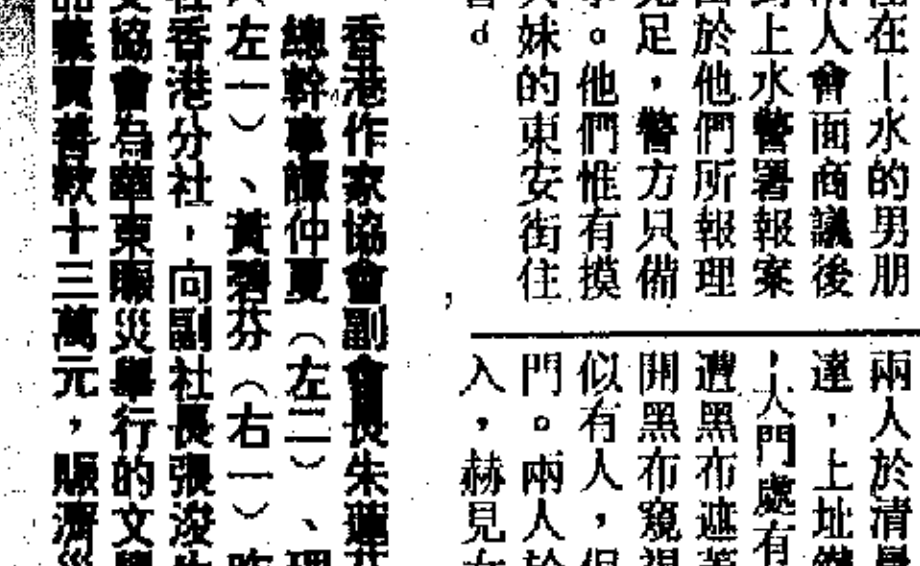 在上水的男朋
人會面商議後
到上水警署報案
於他們所報理
足，警方只備
。他們惟有摸
妹的東安街住
兩人於清晨
達，上址
人門處有
遭黑布遮
開黑布窺視
似有人，但
門。兩人於
入，赫見
香港作家協會副會長朱蓮芬
總幹事譚仲夏（左二）、理
（左一）、黃碧芬（右一）昨
社香港分社，向副社長張浚生
協會為華東賑災舉行的文學
義賣善款十三萬元，賑濟災